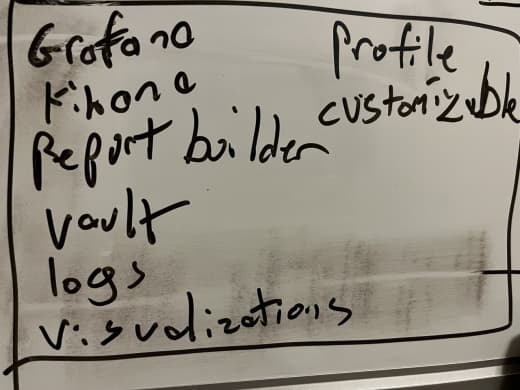 Grafana
Kibana
Report builder
vault
logs
visualizations
Profile
customizable